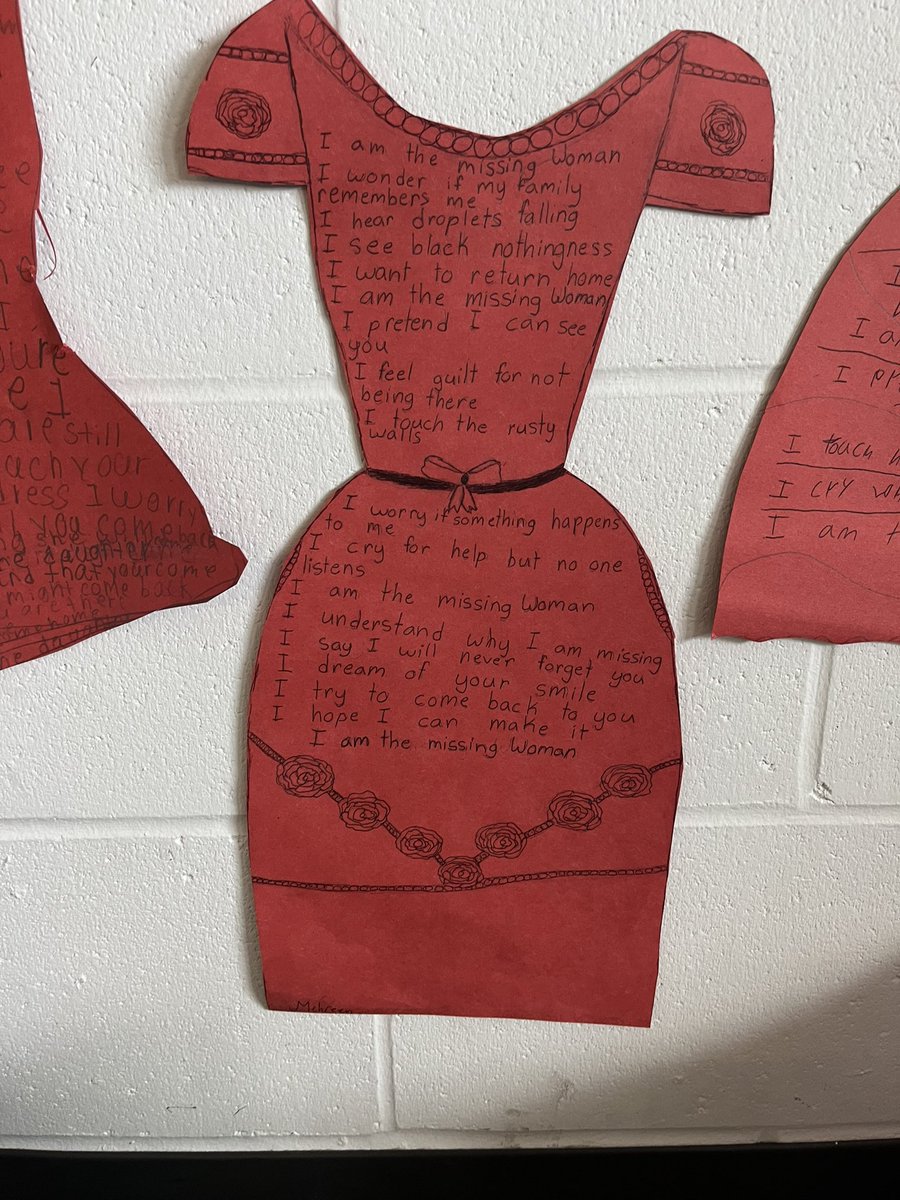 I am the missing Woman
I wonder if my family
remembers me
I hear droplets falling
I see black nothingness
I want to return home
I am the missing Woman
I pretend I can see
you
I feel guilt for not
being there
I touch the rusty
walls
I worry if something happens
to me
I cry for help but no one
listens
I am the missing Woman
I understand why I am missing
I say I will never forget you
I dream of your smile
I try to come back to you
I hope I can make it
I am the missing Woman
Mehreen
are still
each your
dress I worry
you come back
daughter
that your come
might come back
home
I
I
I pr
I touch
I cry
I am